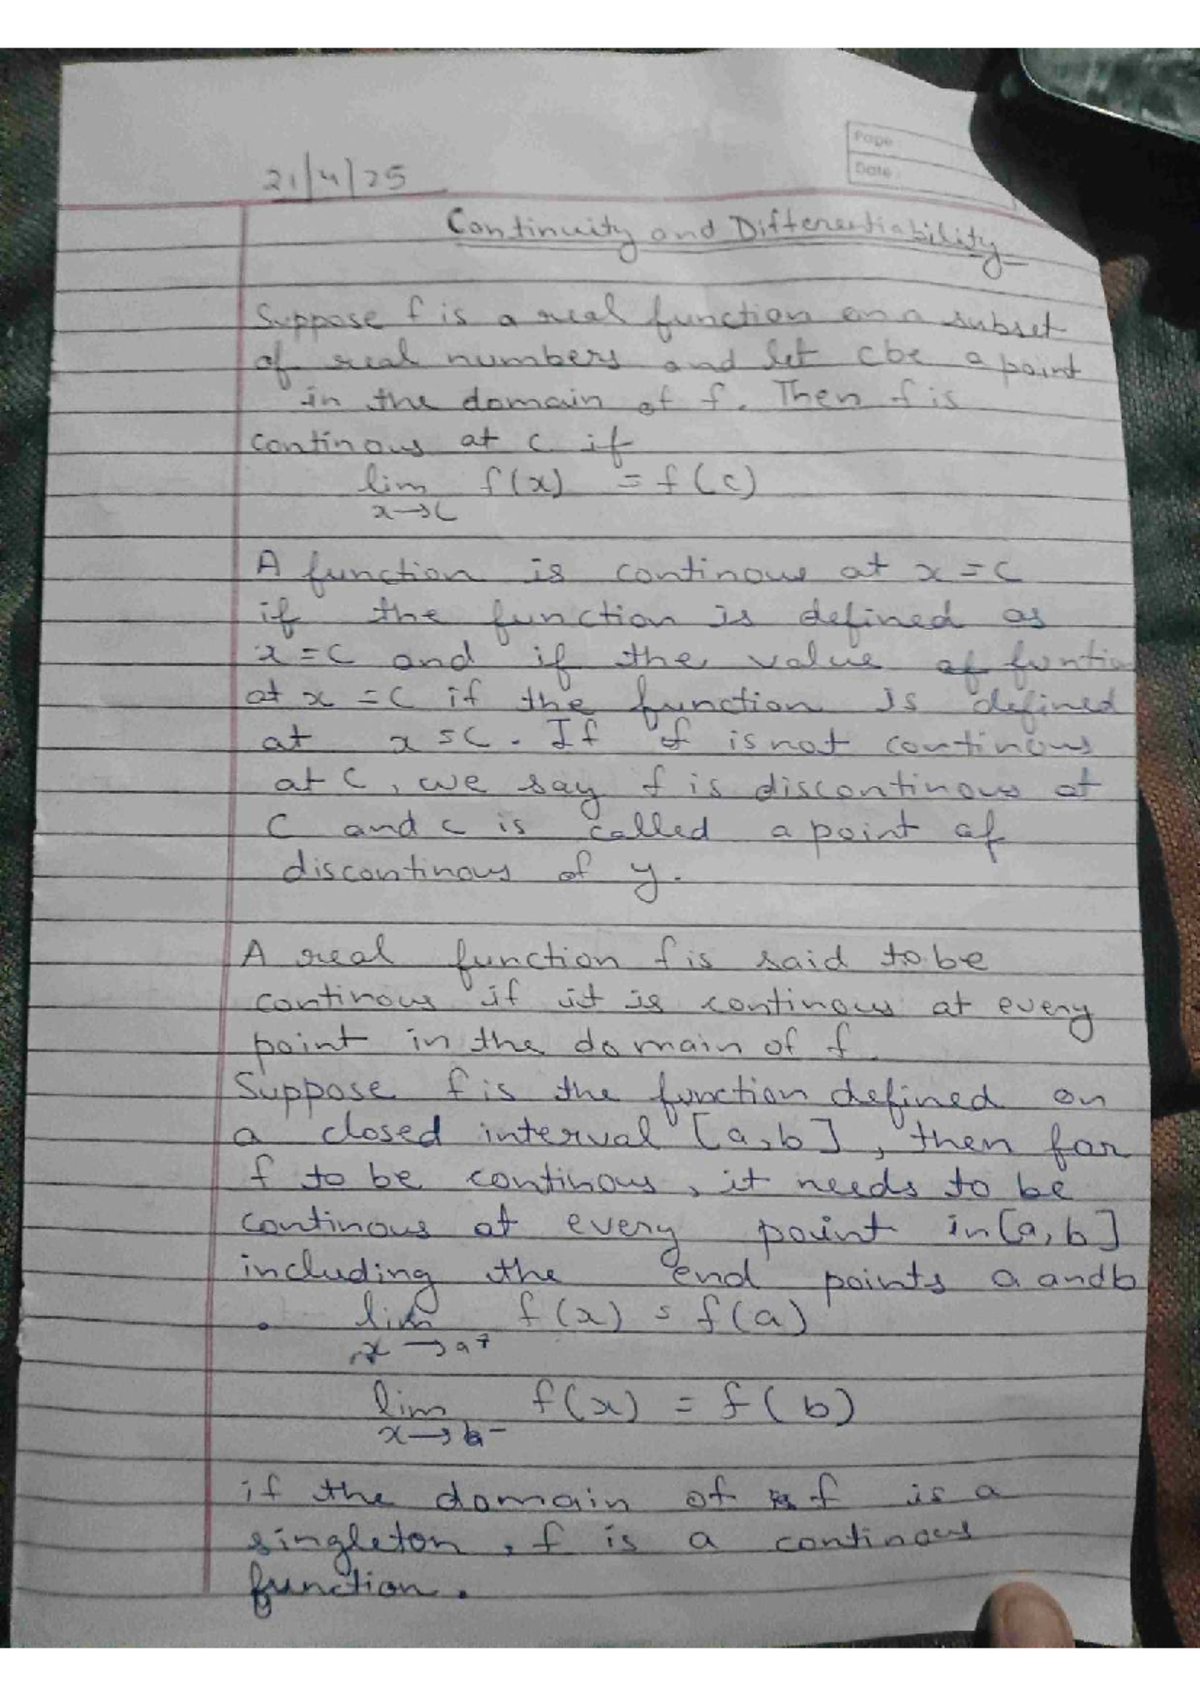 Page :
Date :
21/4/25
Continuity and Differentiability
Suppose f is a real function on a subset
of real numbers and let c be a point
in the domain of f. Then f is
continous at c if
lim f(x) = f(c)
x→c
A function is continous at x = c
if the function is defined as
x = c and if the value of funtio
at x = c if the function is defined
at x = c. If f is not continous
at c, we say f is discontinous at
c and c is called a point of
discontinous of y.
A real function f is said to be
continous if it is continous at every
point in the domain of f.
Suppose f is the function defined on
a closed interval [a,b], then for
f to be continous, it needs to be
continous at every point in [a,b]
including the end points a and b
. lim f(x) = f(a)
x→a+
lim f(x) = f(b)
x→b-
if the domain of f is a
singleton, f is a continous
function.